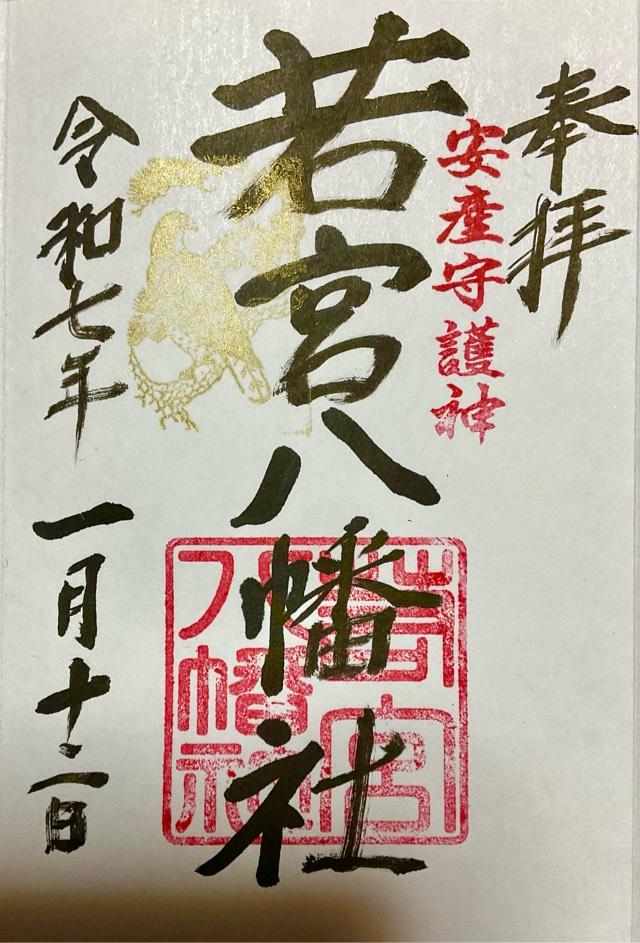 奉拝
安産守護神
若宮八幡社
若宮
八幡社
令和七年 一月十二日